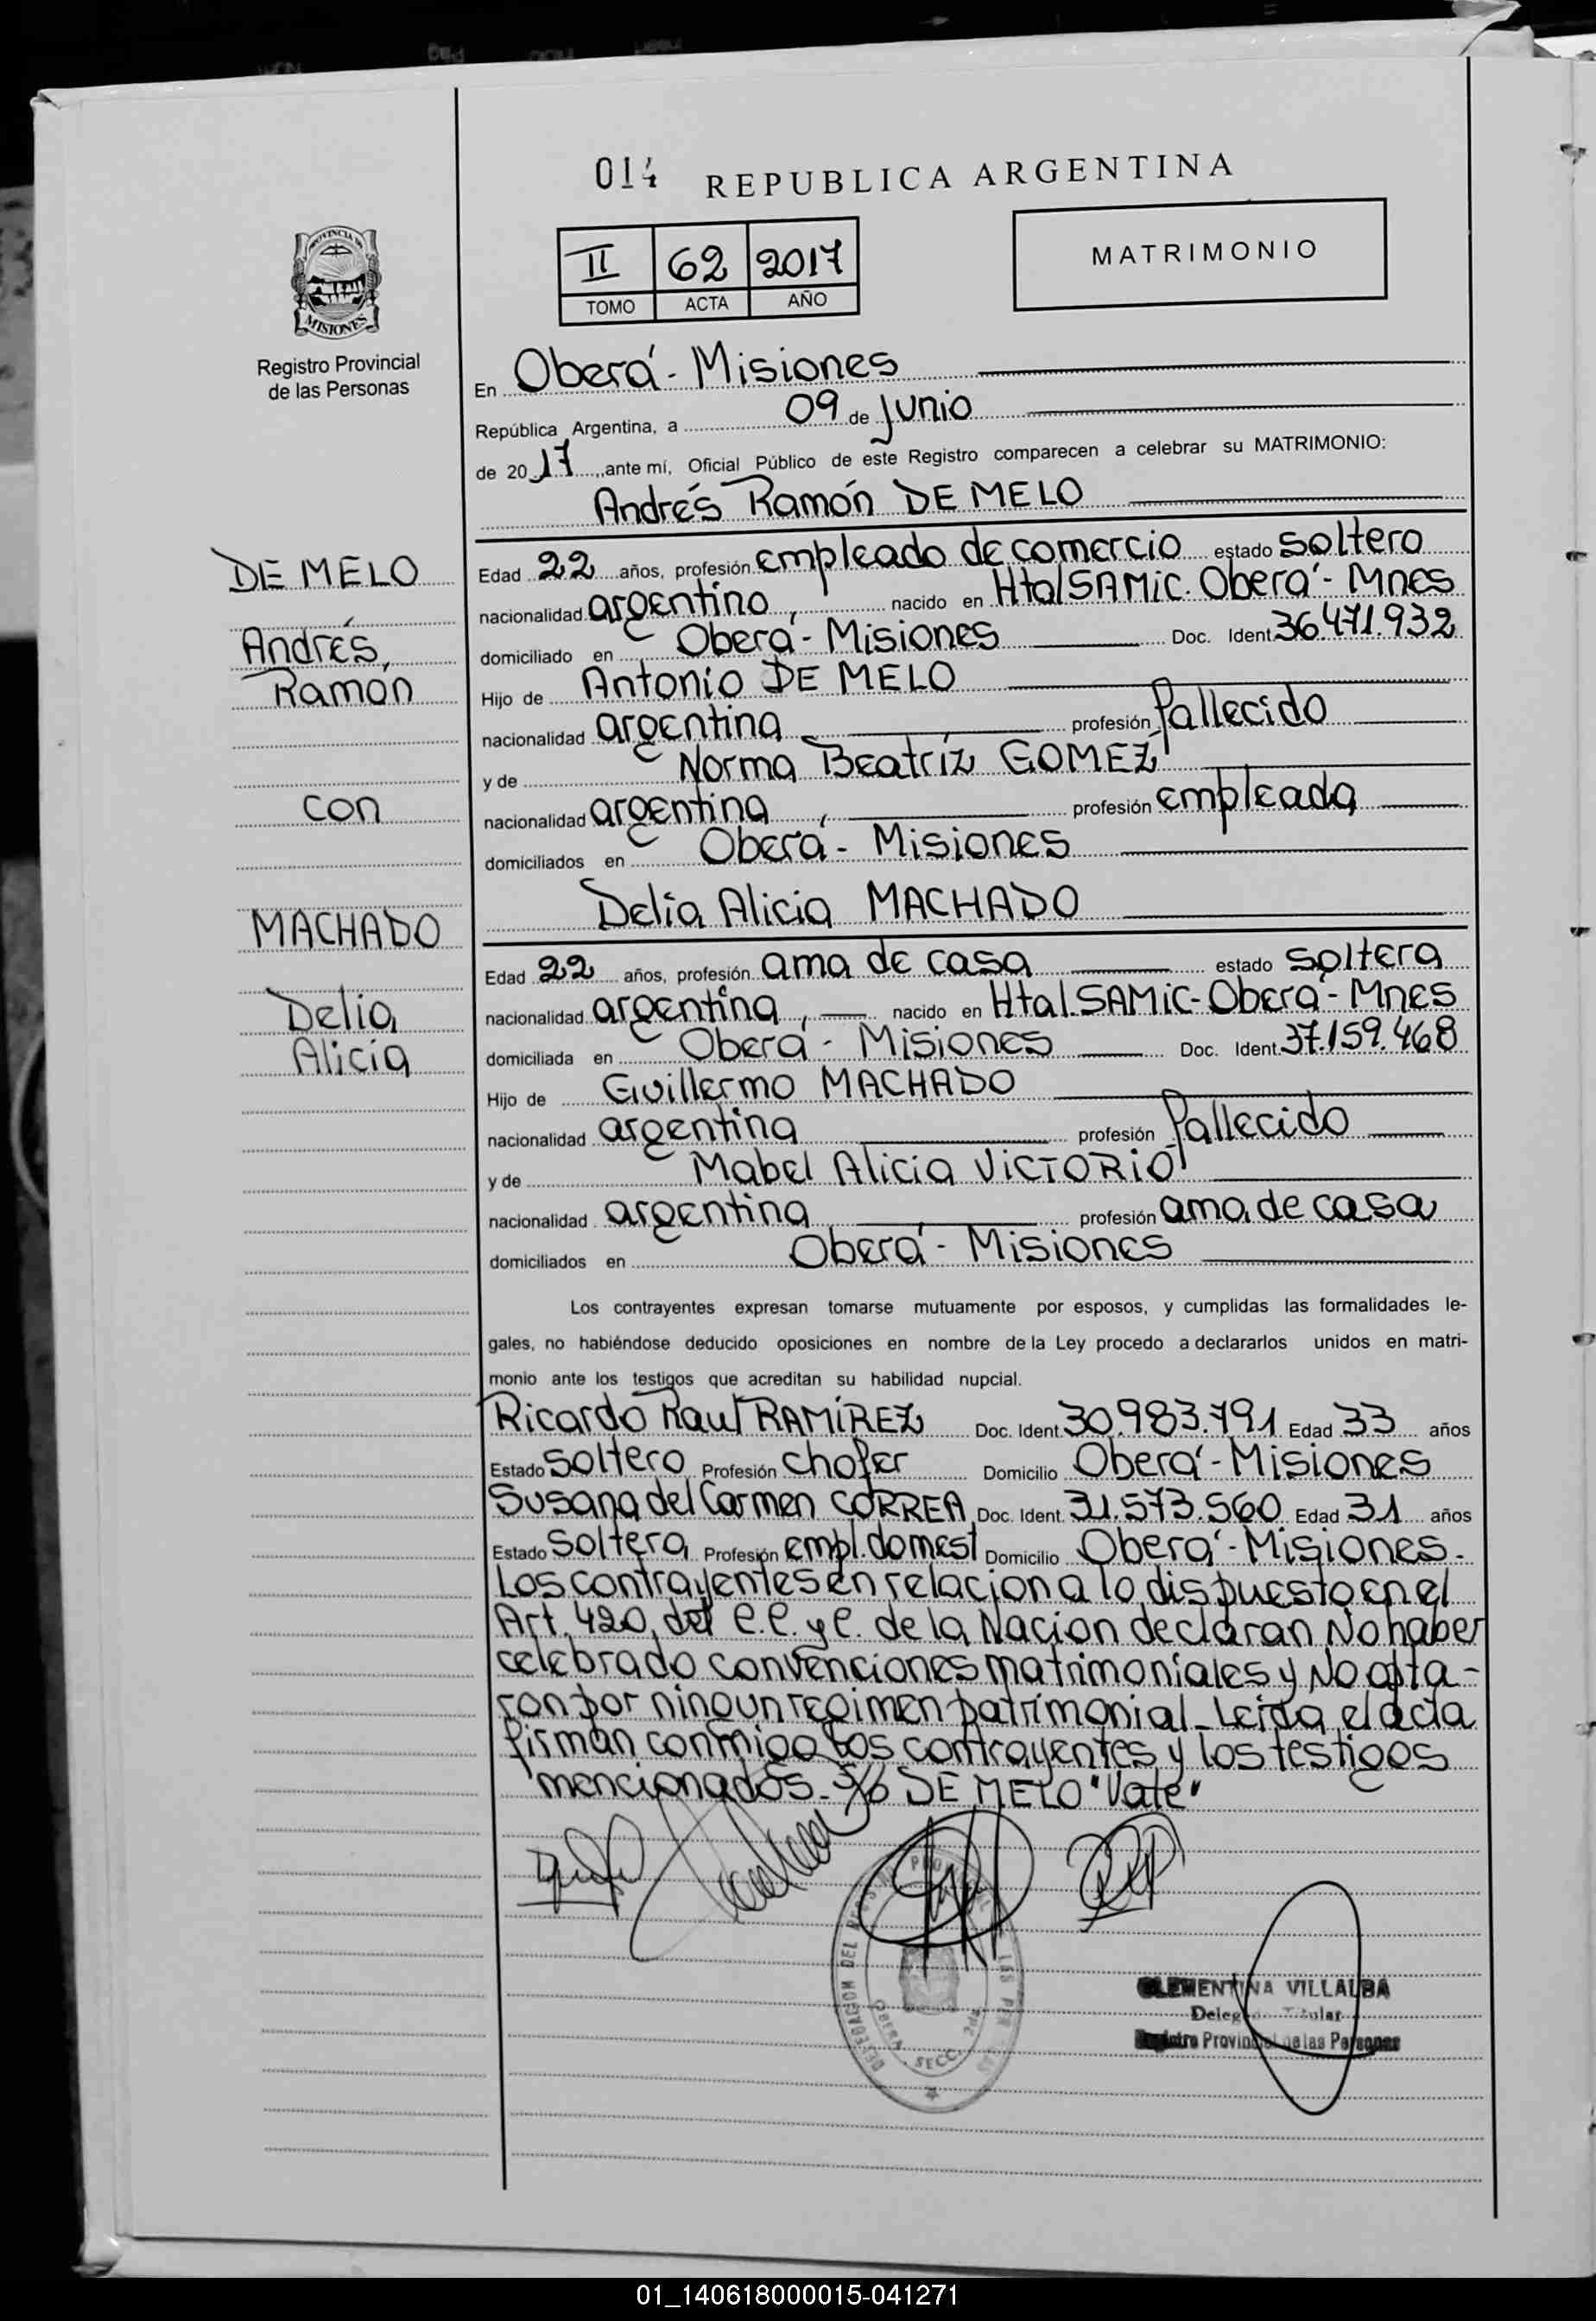 014 REPUBLICA ARGENTINA
II 62 2017
TOMO ACTA AÑO
MATRIMONIO
PROVINCIA DE
MISIONES
Registro Provincial
de las Personas
En Oberá - Misiones
República Argentina, a 09 de junio
de 20 17, ante mí, Oficial Público de este Registro comparecen a celebrar su MATRIMONIO:
Andrés Ramón DE MELO
DE MELO
Andrés,
Ramón
con
MACHADO
Delia
Alicia
Edad 22 años, profesión empleado de comercio estado soltero
nacionalidad argentino, nacido en Htal SAMIC. Oberá - Mnes
domiciliado en Oberá - Misiones Doc. Ident. 36.471.932
Hijo de Antonio DE MELO
nacionalidad argentina profesión fallecido
y de Norma Beatríz GOMEZ
nacionalidad argentina, profesión empleada
domiciliados en Oberá - Misiones
Delia Alicia MACHADO
Edad 22 años, profesión ama de casa estado soltera
nacionalidad argentina, nacido en Htal. SAMIC - Oberá - Mnes
domiciliada en Oberá - Misiones Doc. Ident. 37.159.468
Hijo de Guillermo MACHADO
nacionalidad argentina profesión fallecido
y de Mabel Alicia VICTORIO
nacionalidad argentina profesión ama de casa
domiciliados en Oberá - Misiones
Los contrayentes expresan tomarse mutuamente por esposos, y cumplidas las formalidades le-
gales, no habiéndose deducido oposiciones en nombre de la Ley procedo a declararlos unidos en matri-
monio ante los testigos que acreditan su habilidad nupcial.
Ricardo Raul RAMÍREZ Doc. Ident. 30.983.791 Edad 33 años
Estado soltero Profesión chofer Domicilio Oberá - Misiones
Susana del Carmen CORREA Doc. Ident. 31.573.560 Edad 31 años
Estado soltera Profesión empl. domest Domicilio Oberá - Misiones.
Los contrayentes en relacion a lo dispuesto en el
Art. 420, del C.C. y C. de la Nacion declaran No haber
celebrado convenciones matrimoniales y No opta-
ron por ningun regimen patrimonial - Leida el acta
firman conmigo los contrayentes y los testigos
mencionados. S/b DE MELO "Vale"
DELEGACION DEL
SECC. 2da
CLEMENTINA VILLALBA
Titular
Registro Provincial de las Personas
01_140618000015-041271